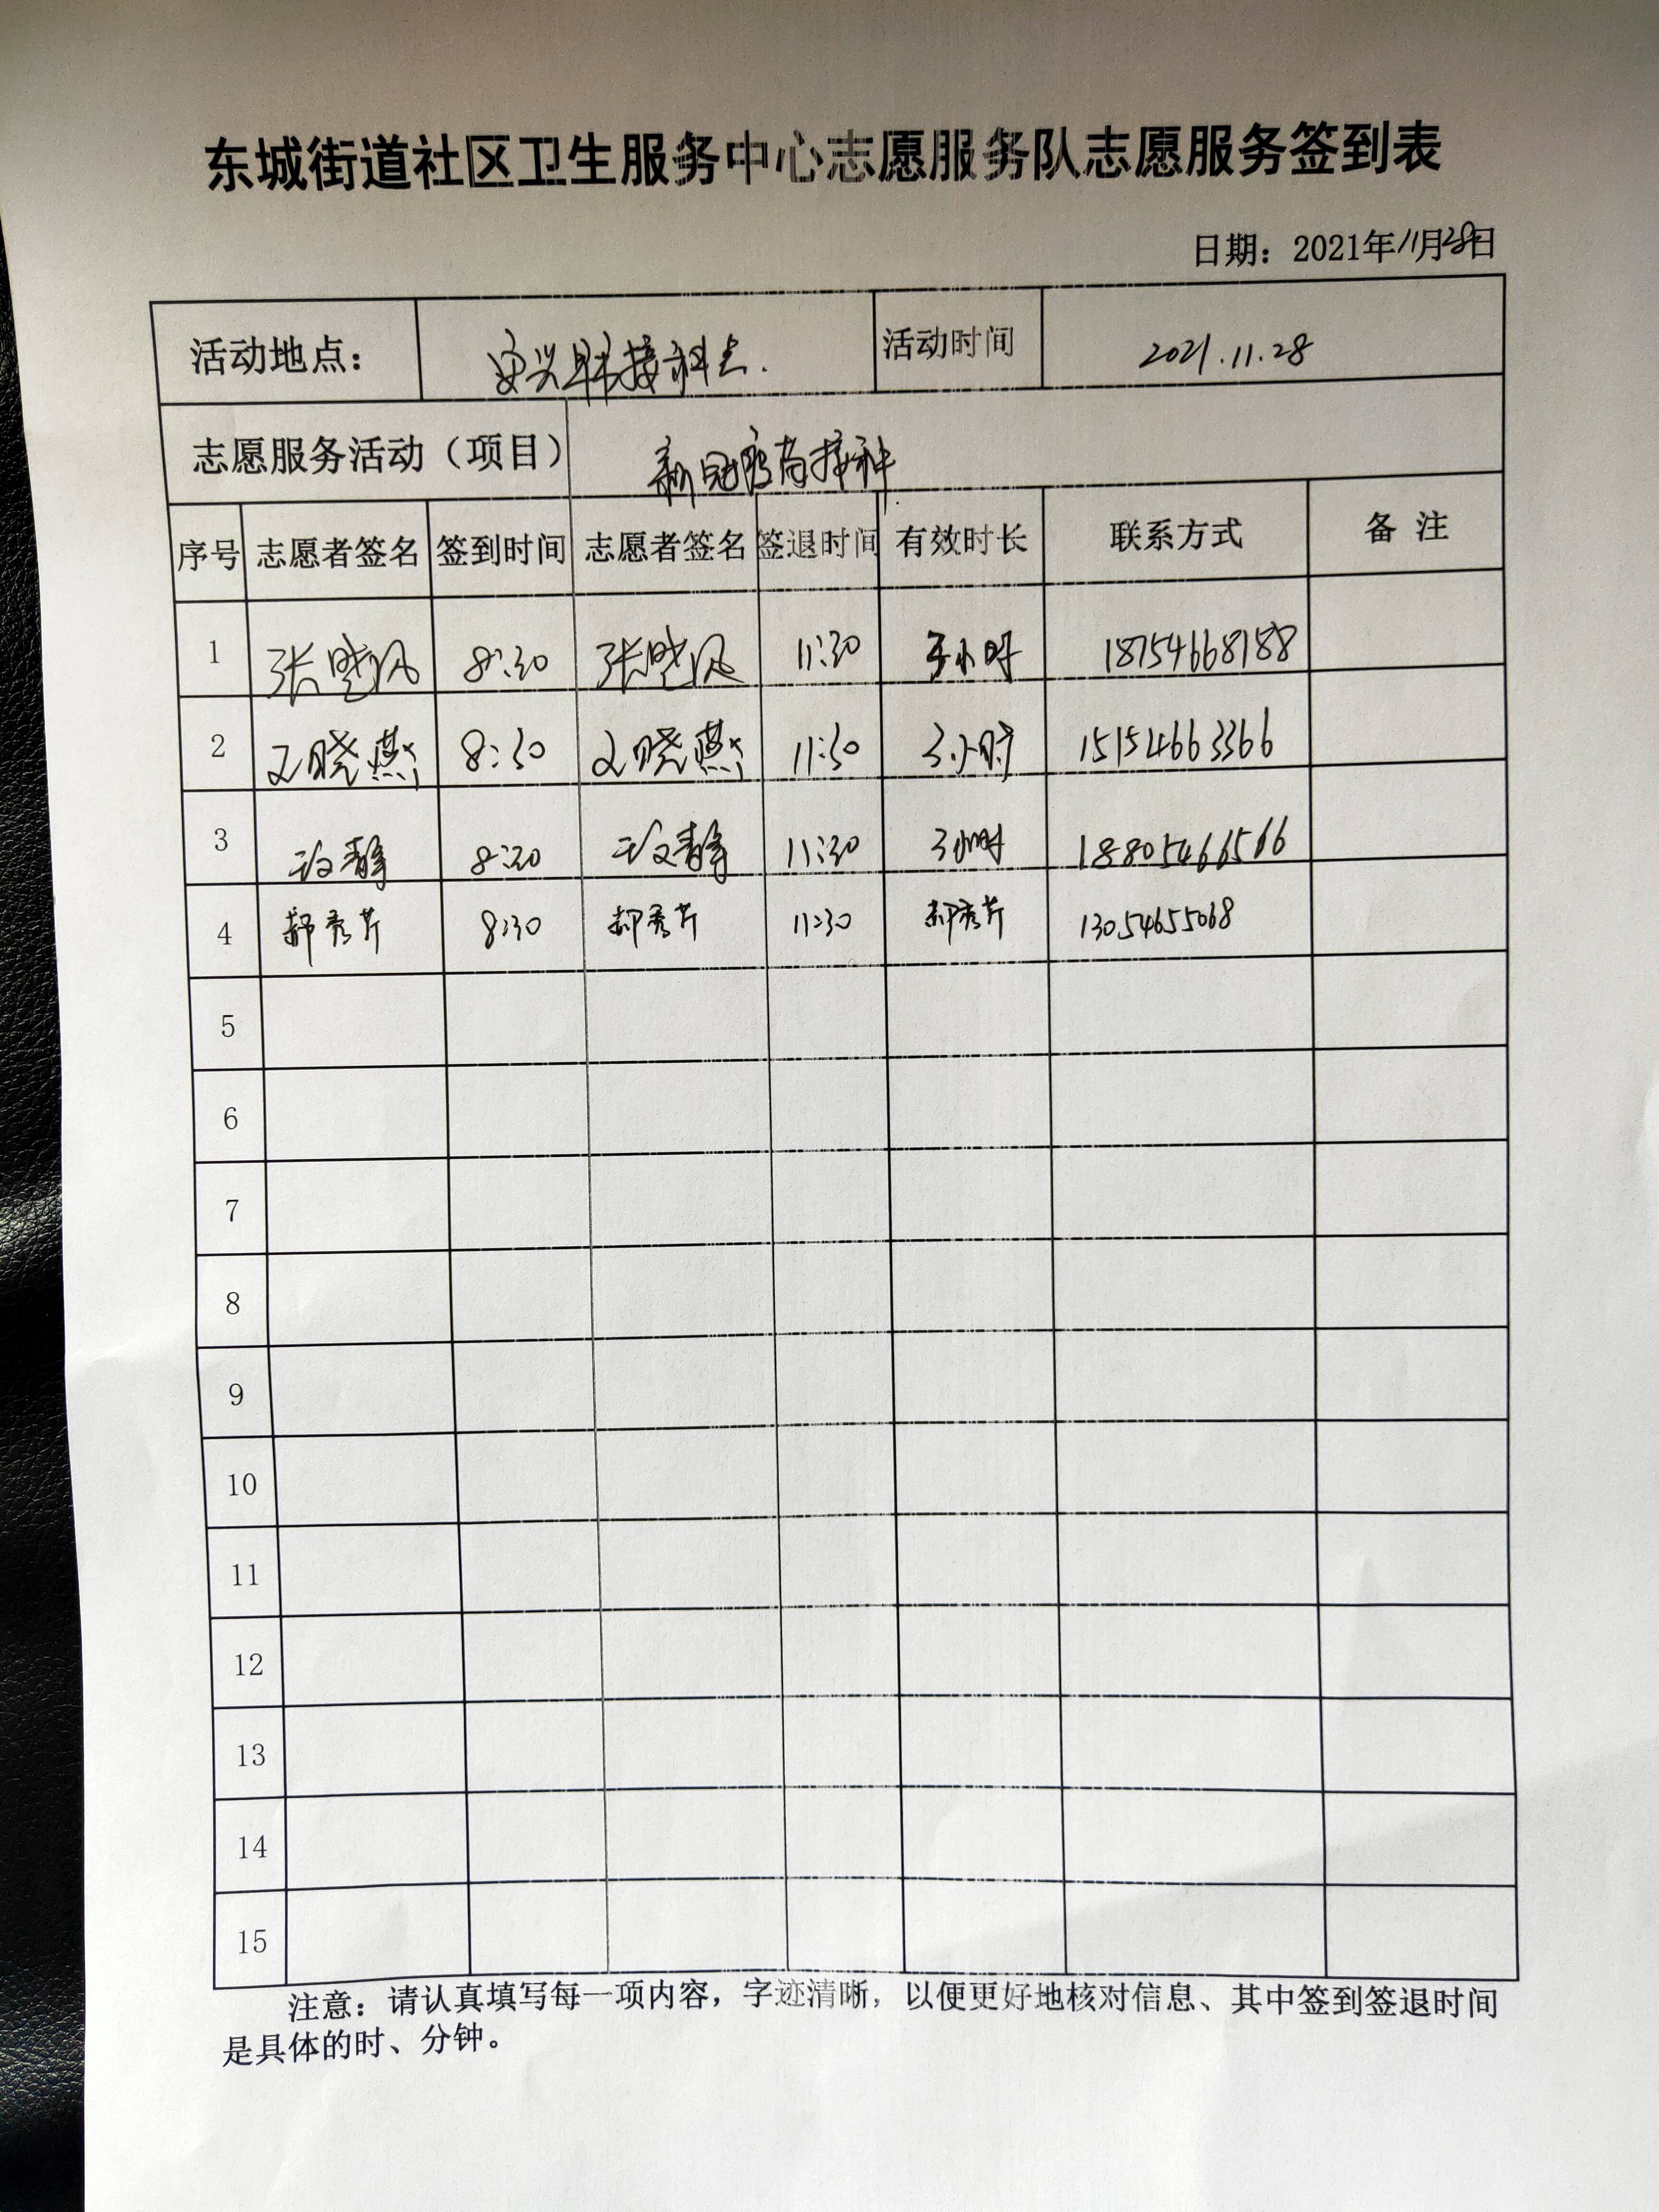 东城街道社区卫生服务中心志愿服务队志愿服务签到表
日期：2021年11月28日
活动地点： 活动时间 2021.11.28
志愿服务活动（项目） 新冠疫苗接种
序号 志愿者签名 签到时间 志愿者签名 签退时间 有效时长 联系方式 备 注
1 张晓风 8:30 张晓风 11:30 3小时 18754668188
2 文晓燕 8:30 文晓燕 11:30 3小时 15154663366
3 8:30 11:30 3小时 18805466566
4 郝秀芹 8:30 郝秀芹 11:30 郝秀芹 13054655068
5
6
7
8
9
10
11
12
13
14
15
注意：请认真填写每一项内容，字迹清晰，以便更好地核对信息、其中签到签退时间
是具体的时、分钟。